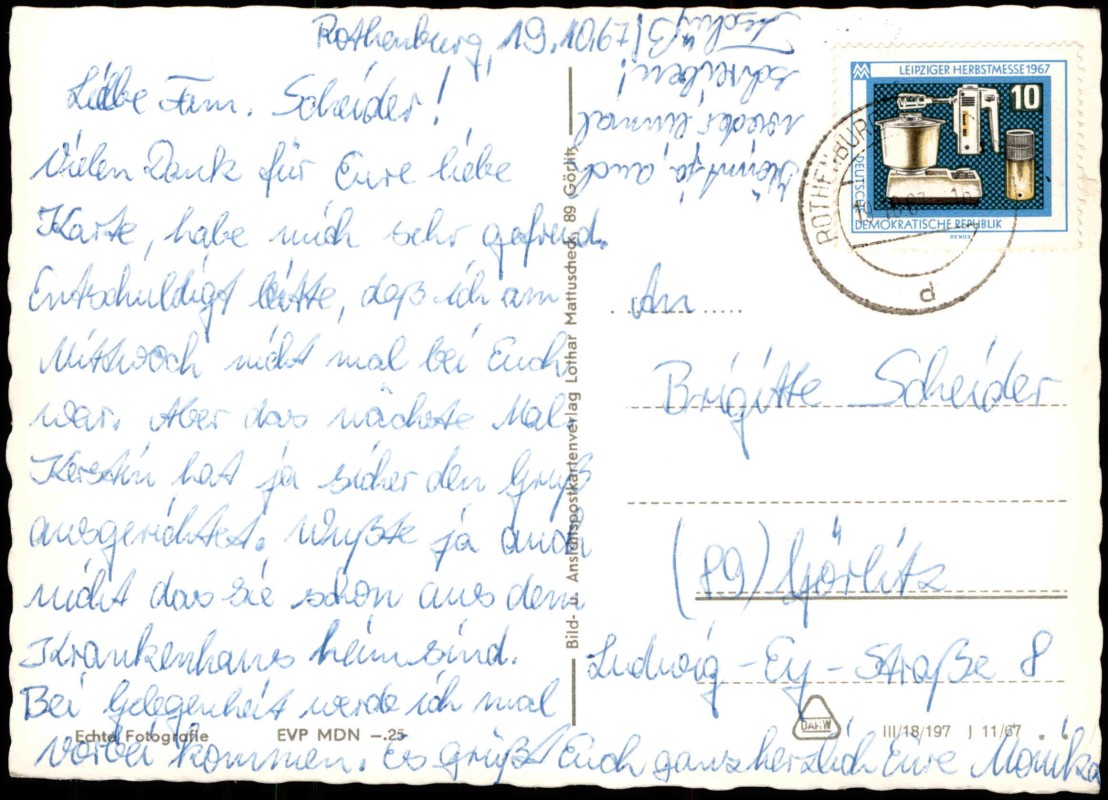 Rothenburg, 19.10.67
Liebe Fam. Scheider!
Vielen Dank für Eure liebe
Karte, habe mich sehr gefreud.
Entschuldigt bitte, daß ich am
Mittwoch nicht mal bei Euch
war. Aber das nächste Mal.
Kerstin hat ja sicher den Gruß
ausgerichtet. Wußte ja auch
nicht das sie schon aus dem
Krankenhaus heim sind.
Bei Gelegenheit werde ich mal
vorbei kommen. Es grüßt Euch ganz herzlich Eure Monika
Könnt ja auch
wieder einmal
schreiben!
Tschüß!
LEIPZIGER HERBSTMESSE 1967
10
DEUTSCHE
DEMOKRATISCHE REPUBLIK
ROTHENBURG
d
An
Brigitte Scheider
(89) Görlitz
Ludwig-Ey-Straße 8
Bild- u. Ansichtspostkartenverlag Lothar Mattuscheck, 89 Görlitz
Echte Fotografie EVP MDN –.25
III/18/197 J 11/67